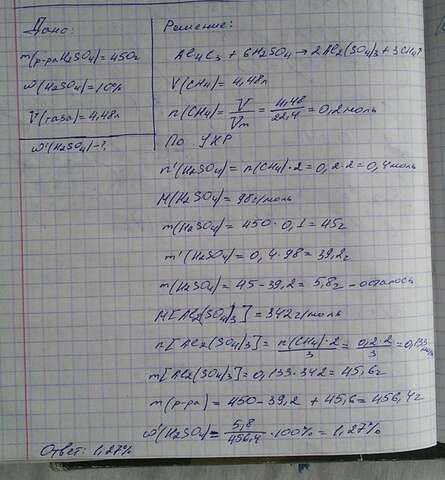 Дано:
m(р-ра H2SO4)=450г
ω(H2SO4)=10%
V(газа)=4,48л
ω'(H2SO4)-?
Решение:
Al4C3 + 6H2SO4 → 2Al2(SO4)3 + 3CH4↑
V(CH4)=4,48л
n(CH4)= V/Vm = 4,48/22,4 = 0,2 моль
По УХР
n'(H2SO4)=n(CH4)·2=0,2·2=0,4 моль
M(H2SO4)=98г/моль
m(H2SO4)=450·0,1=45г
m'(H2SO4)=0,4·98=39,2г
m(H2SO4)=45-39,2=5,8г - осталось
M[Al2(SO4)3]=342г/моль
n[Al2(SO4)3]= n(CH4)·2/3 = 0,2·2/3 =0,133 моль
m[Al2(SO4)3]=0,133·342=45,6г
m(р-ра)=450-39,2+45,6=456,4г
ω'(H2SO4)= 5,8/456,4 ·100%=1,27%
Ответ: 1,27%